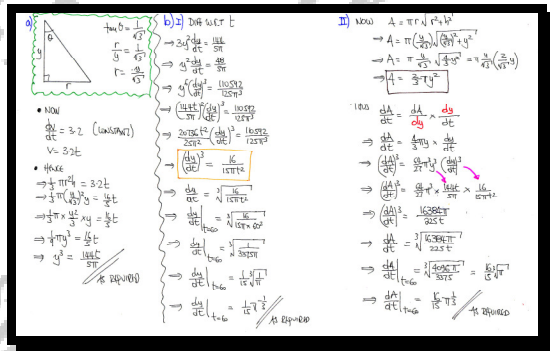 a)
tanθ = 1/√3
r/y = 1/√3
r = y/√3
θ
y
r
• NOW
dv/dt = 3.2 (CONSTANT)
V = 3.2t
• HENCE
⇒ 1/3 πr²y = 3.2t
⇒ 1/3 π(y/√3)² y = 16/5 t
⇒ 1/3 π × y²/3 × y = 16/5 t
⇒ 1/9 πy³ = 16/5 t
⇒ y³ = 144t/5π
AS REQUIRED
b) I) DIFF W.R.T t
⇒ 3y² dy/dt = 144/5π
⇒ y² dy/dt = 48/5π
⇒ y⁶ (dy/dt)³ = 110592/125π³
⇒ (144t/5π)² (dy/dt)³ = 110592/125π³
⇒ 20736t²/25π² (dy/dt)³ = 110592/125π³
⇒ (dy/dt)³ = 16/15πt²
⇒ dy/dt = ∛(16/15πt²)
⇒ dy/dt|t=60 = ∛(16/15π×60²)
⇒ dy/dt|t=60 = ∛(1/3375π)
⇒ dy/dt|t=60 = 1/15 ∛(1/π)
⇒ dy/dt|t=60 = 1/15 π^-1/3
AS REQUIRED
II) NOW A = πr√(r²+h²)
⇒ A = π(y/√3)√((y/√3)²+y²)
⇒ A = π y/√3 √(4/3 y²) = π y/√3 (2/√3 y)
⇒ A = 2/3 πy²
THUS dA/dt = dA/dy × dy/dt
⇒ dA/dt = 4/3 πy × dy/dt
⇒ (dA/dt)³ = 64/27 π³y³ (dy/dt)³
⇒ (dA/dt)³ = 64/27 π³ × 144t/5π × 16/15πt²
⇒ (dA/dt)³ = 16384π/225t
⇒ dA/dt = ∛(16384π/225t)
⇒ dA/dt|t=60 = ∛(4096π/3375) = 16/15 ∛π
⇒ dA/dt|t=60 = 16/15 π^1/3
AS REQUIRED